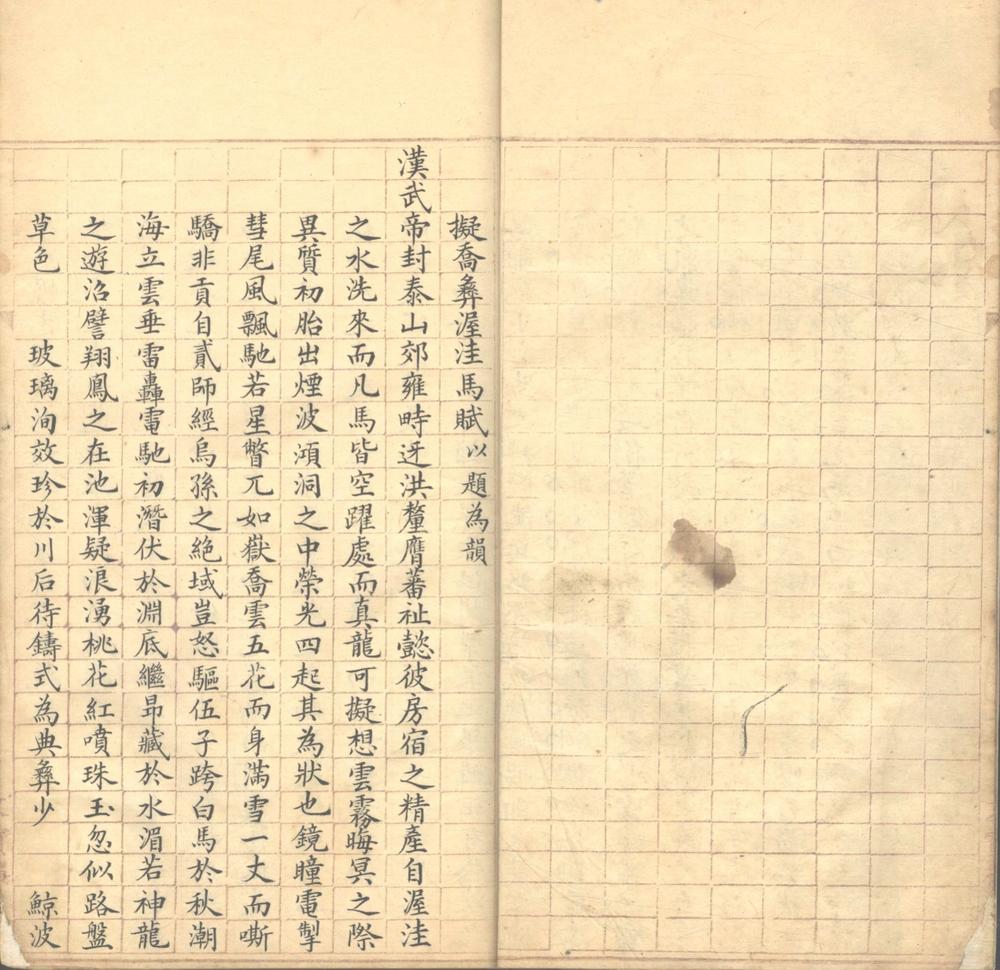 擬喬彝渥洼馬賦以題為韻
漢武帝封泰山郊雍畤迓洪釐膺蕃祉懿彼房宿之精產自渥洼
之水洗來而凡馬皆空躍處而真龍可擬想雲霧晦冥之際
異質初胎出煙波澒洞之中榮光四起其為狀也鏡瞳電掣
彗尾風飄馳若星瞥兀如嶽喬雲五花而身滿雪一丈而嘶
驕非貢自貳師經烏孫之絕域豈怒驅伍子跨白馬於秋潮
海立雲垂雷轟電馳初潛伏於淵底繼昂藏於水湄若神龍
之遊沼譬翔鳳之在池渾疑浪湧桃花紅噴珠玉忽似路盤
草色 玻璃洵效珍於川后待鑄式為典彝少 鯨波